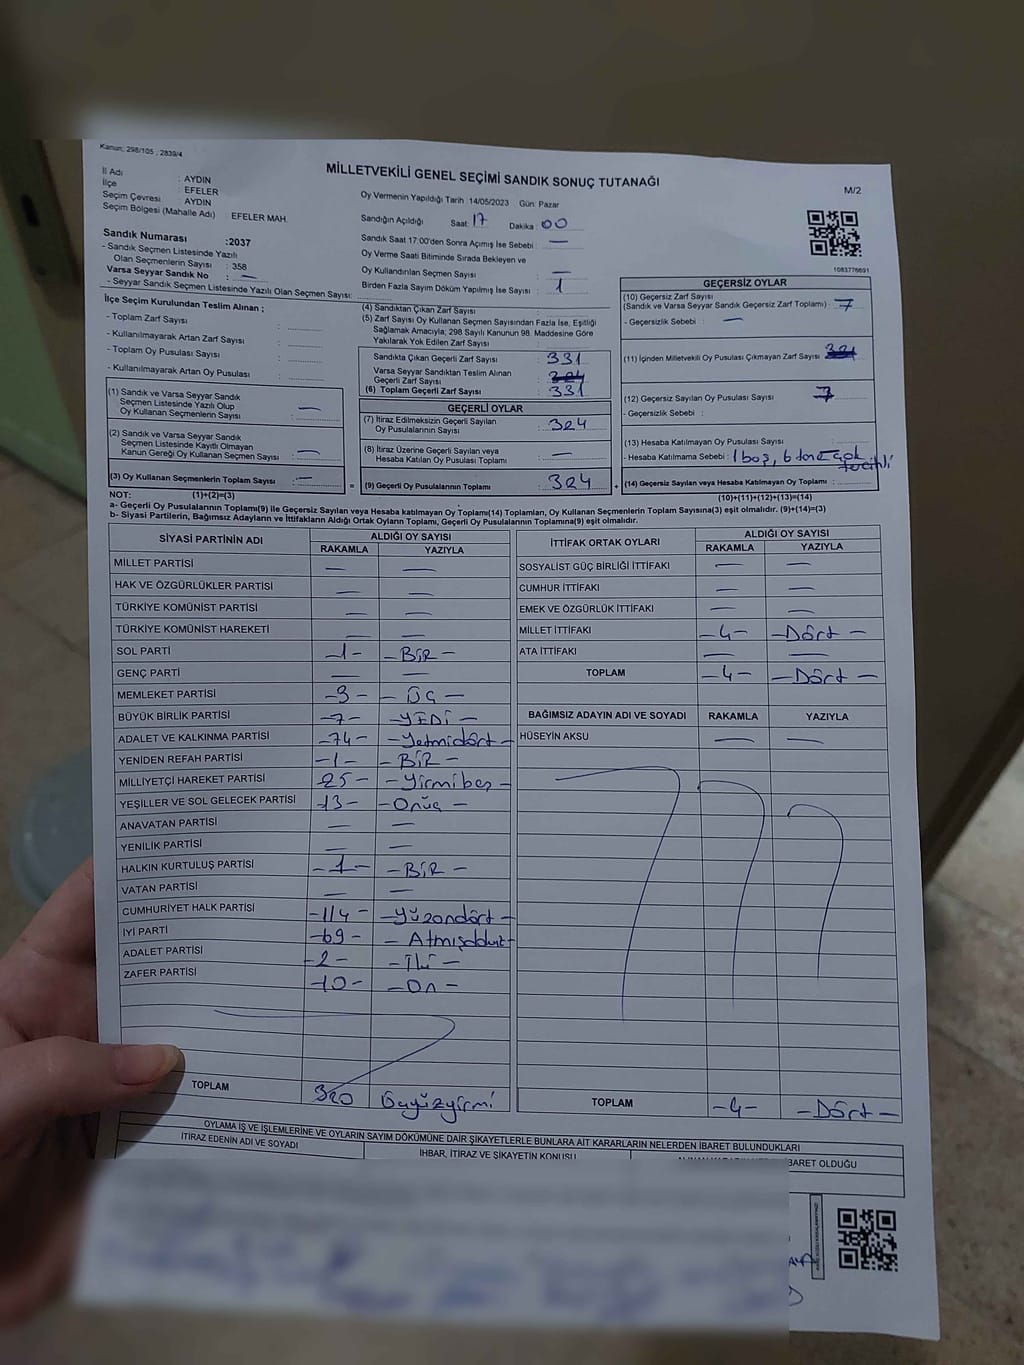 Kanun: 298/105 , 2839/4
MİLLETVEKİLİ GENEL SEÇİMİ SANDIK SONUÇ TUTANAĞI
M/2
İl Adı : AYDIN
İlçe : EFELER
Seçim Çevresi AYDIN
Seçim Bölgesi (Mahalle Adı) : EFELER MAH.
Sandık Numarası :2037
- Sandık Seçmen Listesinde Yazılı
Olan Seçmenlerin Sayısı : 358
Varsa Seyyar Sandık No : —
- Seyyar Sandık Seçmen Listesinde Yazılı Olan Seçmen Sayısı:
Oy Vermenin Yapıldığı Tarih :14/05/2023 Gün: Pazar
Sandığın Açıldığı Saat: 17 Dakika : 00
Sandık Saat 17:00'den Sonra Açımış İse Sebebi : —
Oy Verme Saati Bitiminde Sırada Bekleyen ve
Oy Kullandırılan Seçmen Sayısı : —
Birden Fazla Sayım Döküm Yapılmış İse Sayısı : 1
1083776691
İlçe Seçim Kurulundan Teslim Alınan ;
- Toplam Zarf Sayısı :
- Kullanılmayarak Artan Zarf Sayısı :
- Toplam Oy Pusulası Sayısı :
- Kullanılmayarak Artan Oy Pusulası :
(1) Sandık ve Varsa Seyyar Sandık
Seçmen Listesinde Yazılı Olup
Oy Kullanan Seçmenlerin Sayısı : —
(2) Sandık ve Varsa Seyyar Sandık
Seçmen Listesinde Kayıtlı Olmayan
Kanun Gereği Oy Kullanan Seçmen Sayısı : —
(3) Oy Kullanan Seçmenlerin Toplam Sayısı : — =
(4) Sandıktan Çıkan Zarf Sayısı :
(5) Zarf Sayısı Oy Kullanan Seçmen Sayısından Fazla İse, Eşitliği
Sağlamak Amacıyla; 298 Sayılı Kanunun 98. Maddesine Göre
Yakılarak Yok Edilen Zarf Sayısı :
Sandıkta Çıkan Geçerli Zarf Sayısı : 331
Varsa Seyyar Sandıktan Teslim Alınan
Geçerli Zarf Sayısı :
(6) Toplam Geçerli Zarf Sayısı : 331
GEÇERLİ OYLAR
(7) İtiraz Edilmeksizin Geçerli Sayılan
Oy Pusulalarının Sayısı : 324
(8) İtiraz Üzerine Geçerli Sayılan veya
Hesaba Katılan Oy Pusulası Toplamı : —
(9) Geçerli Oy Pusulalarının Toplamı : 324 +
GEÇERSİZ OYLAR
(10) Geçersiz Zarf Sayısı
(Sandık ve Varsa Seyyar Sandık Geçersiz Zarf Toplamı) : 7
- Geçersizlik Sebebi : —
(11) İçinden Milletvekili Oy Pusulası Çıkmayan Zarf Sayısı :
(12) Geçersiz Sayılan Oy Pusulası Sayısı : 7
- Geçersizlik Sebebi :
(13) Hesaba Katılmayan Oy Pusulası Sayısı :
- Hesaba Katılmama Sebebi : 1 boş, 6 tane çok
tercihli
(14) Geçersiz Sayılan veya Hesaba Katılmayan Oy Toplamı :
NOT: (1)+(2)=(3) (10)+(11)+(12)+(13)=(14)
a- Geçerli Oy Pusulalarının Toplamı(9) ile Geçersiz Sayılan veya Hesaba katılmayan Oy Toplamı(14) Toplamları, Oy Kullanan Seçmenlerin Toplam Sayısına(3) eşit olmalıdır. (9)+(14)=(3)
b- Siyasi Partilerin, Bağımsız Adayların ve İttifakların Aldığı Ortak Oyların Toplamı, Geçerli Oy Pusulalarının Toplamına(9) eşit olmalıdır.
SİYASİ PARTİNİN ADI ALDIĞI OY SAYISI
RAKAMLA YAZIYLA
MİLLET PARTİSİ — —
HAK VE ÖZGÜRLÜKLER PARTİSİ — —
TÜRKİYE KOMÜNİST PARTİSİ — —
TÜRKİYE KOMÜNİST HAREKETİ — —
SOL PARTİ -1- -BİR-
GENÇ PARTİ — —
MEMLEKET PARTİSİ -3- -ÜÇ-
BÜYÜK BİRLİK PARTİSİ -7- -YEDİ-
ADALET VE KALKINMA PARTİSİ -74- -Yetmişdört-
YENİDEN REFAH PARTİSİ -1- -BİR-
MİLLİYETÇİ HAREKET PARTİSİ 25- -Yirmibeş-
YEŞİLLER VE SOL GELECEK PARTİSİ -13- -Onüç-
ANAVATAN PARTİSİ — —
YENİLİK PARTİSİ — —
HALKIN KURTULUŞ PARTİSİ -1- -BİR-
VATAN PARTİSİ — —
CUMHURİYET HALK PARTİSİ -114- -Yüzondört-
İYİ PARTİ -69- -Atmışdokuz-
ADALET PARTİSİ -2- -İki-
ZAFER PARTİSİ -10- -On-
TOPLAM 320 Üçyüzyirmi
İTTİFAK ORTAK OYLARI ALDIĞI OY SAYISI
RAKAMLA YAZIYLA
SOSYALİST GÜÇ BİRLİĞİ İTTİFAKI — —
CUMHUR İTTİFAKI — —
EMEK VE ÖZGÜRLÜK İTTİFAKI — —
MİLLET İTTİFAKI -4- -Dört-
ATA İTTİFAKI — —
TOPLAM -4- -Dört-
BAĞIMSIZ ADAYIN ADI VE SOYADI RAKAMLA YAZIYLA
HÜSEYİN AKSU — —
TOPLAM -4- -Dört-
OYLAMA İŞ VE İŞLEMLERİNE VE OYLARIN SAYIM DÖKÜMÜNE DAİR ŞİKAYETLERLE BUNLARA AİT KARARLARIN NELERDEN İBARET BULUNDUKLARI
İTİRAZ EDENİN ADI VE SOYADI İHBAR, İTİRAZ VE ŞİKAYETİN KONUSU İBARET OLDUĞU